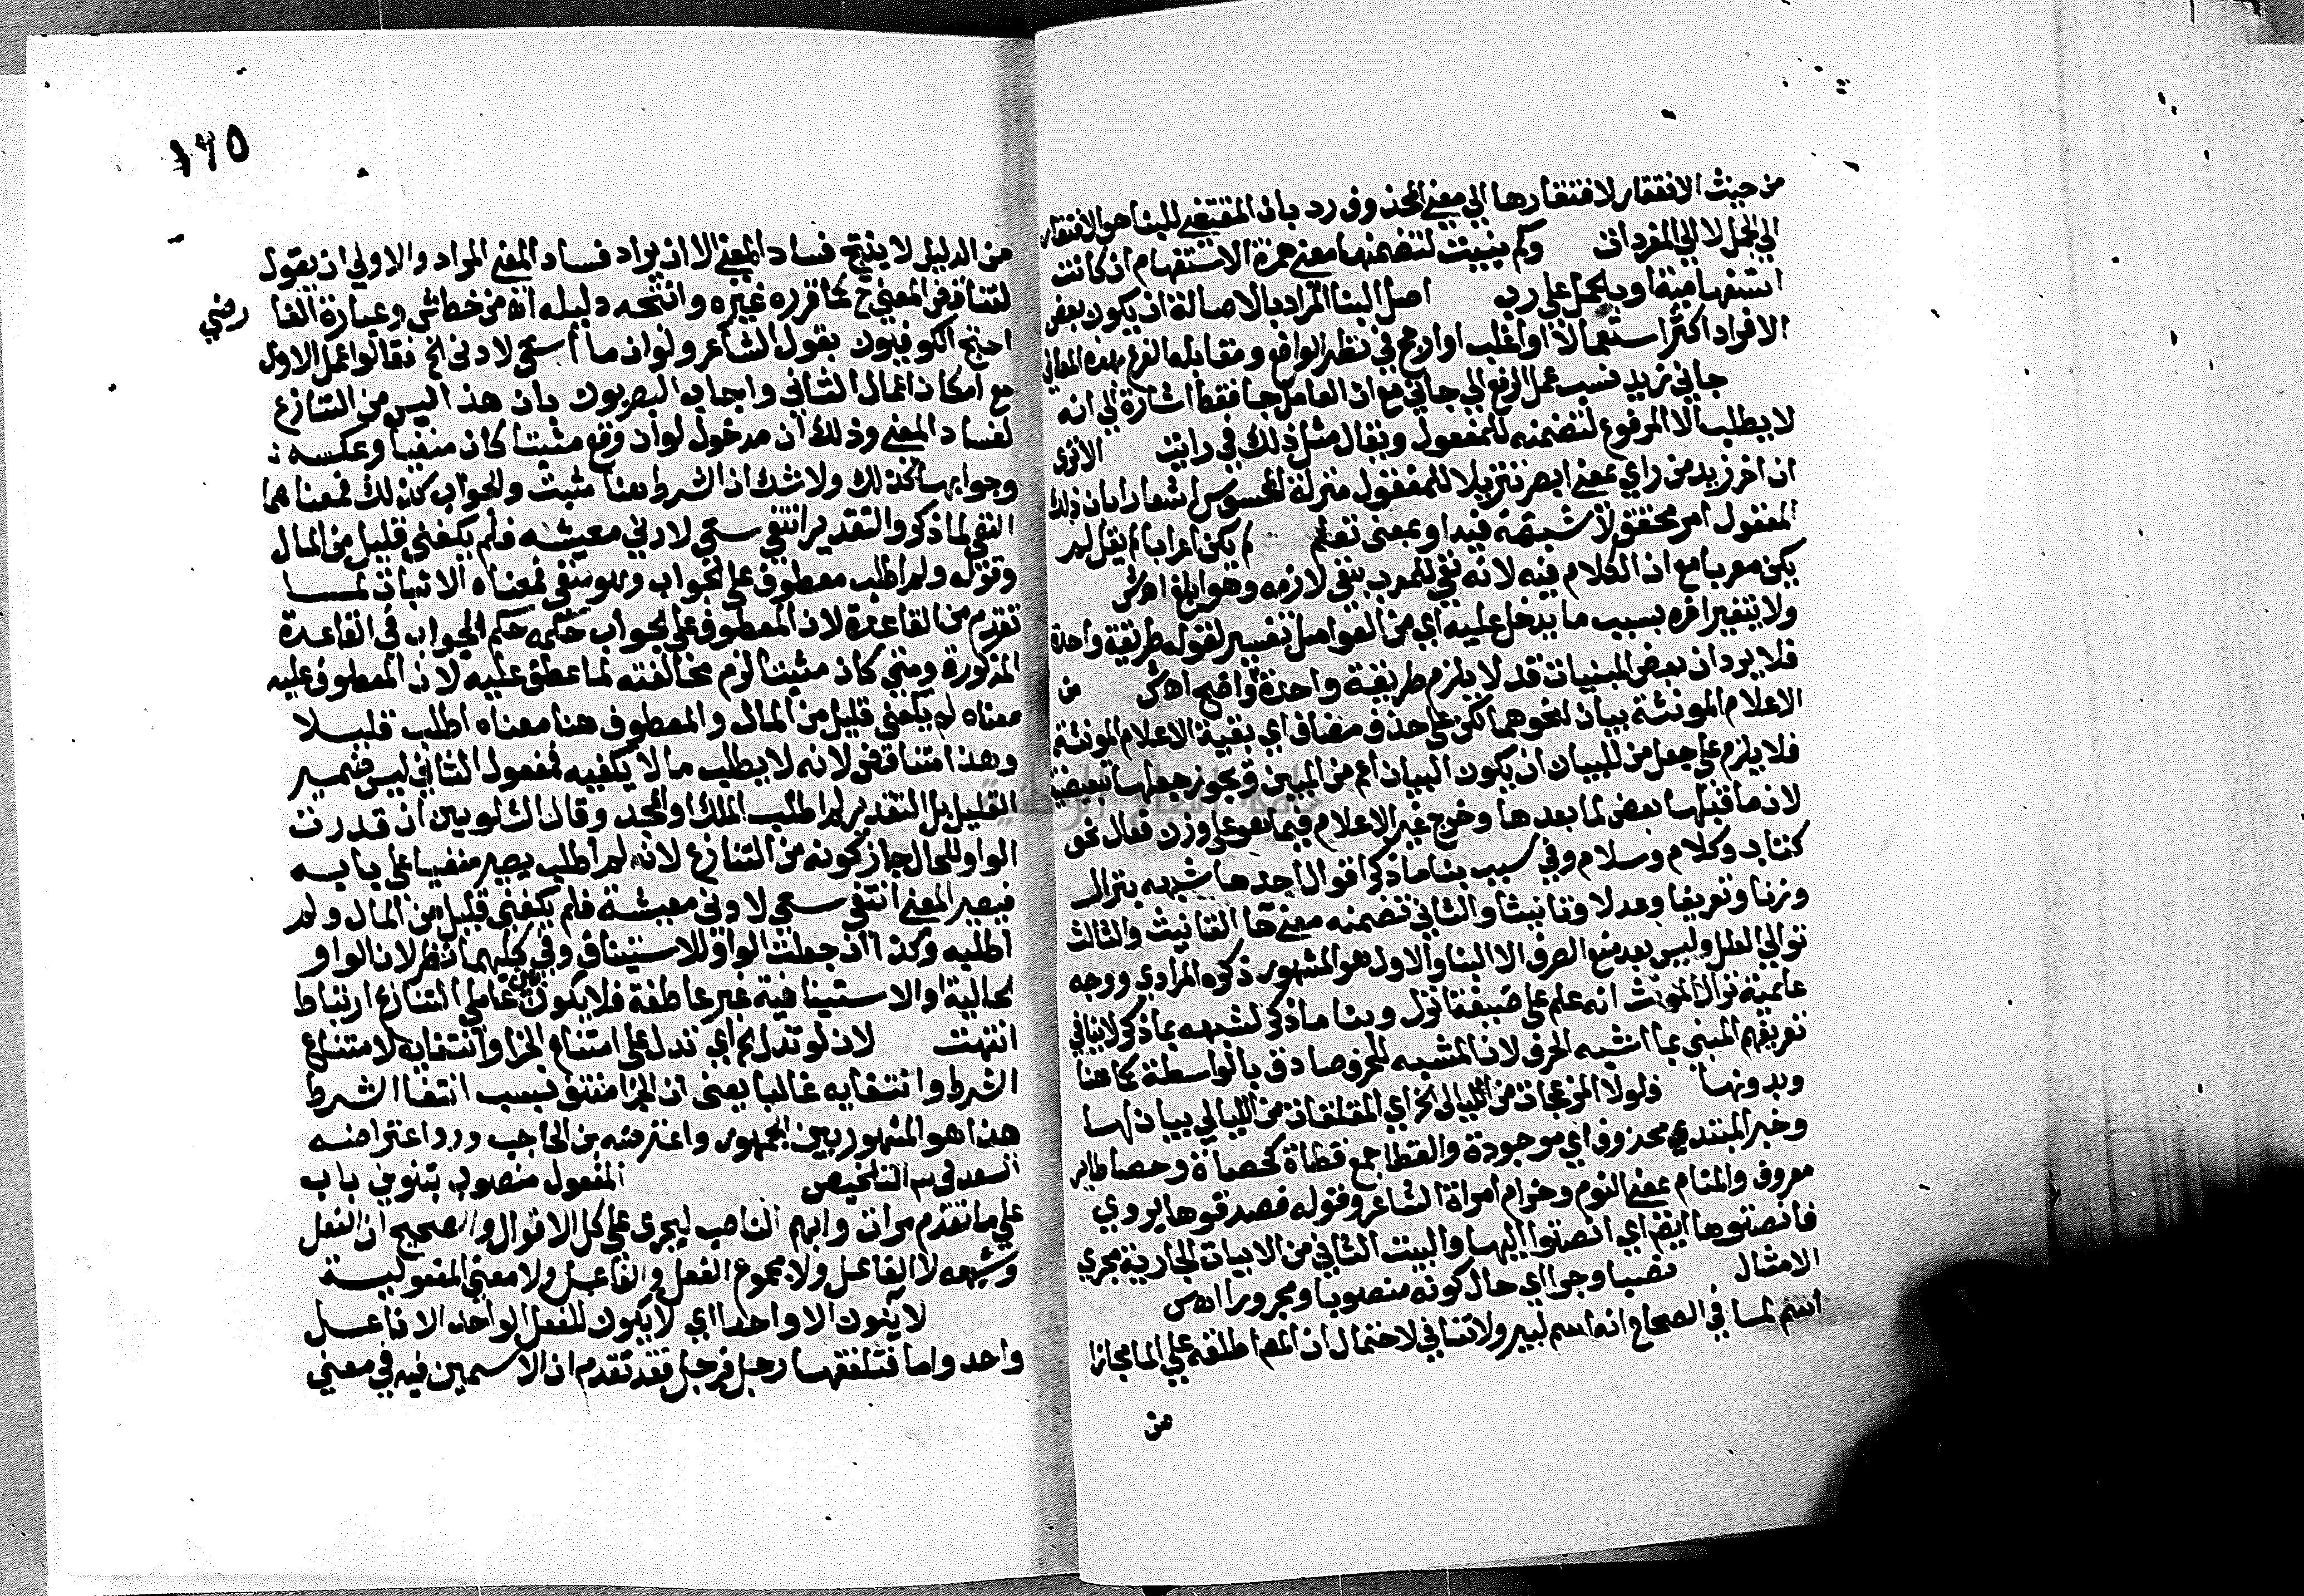 من حيث الافتقار لافتقارها الي معني المحذوف رد بان المقتضي للبنا هو الافتقار
الي الجمل لا الي المفردات وكم بنيت لتضمنها معني همزة الاستفهام ان كانت
استفهامية او بالحمل علي رب اصل البنا المراد بالاصالة ان يكون بعض
الافراد اكثر استعمالا او اغلب او ارجح في نظر الواضع ومقابله الفرع بهذه المعاني
جاني زيد نسب عمل الرفع الي جاني مع ان العامل جا فقط اشارة الي انه
لا يطلب الا المرفوع لتضمنه للمفعول ويقال مثل ذلك في رايت الاتري
ان اخر زيد من راي بمعني ابصر تنزيلا للمفعول منزلة المحسوس اشعارا بان ذلك
المفعول امر محقق لا شبهة فيه او بمعني تعلم لم يكن اعرابا لم يقل لم
يكن معربا مع ان الكلام فيه لانه نفي للمعرب بنفي لازمه وهو ابلغ اه ش
ولا يتغير اخره بسبب ما يدخل عليه اي من العوامل تفسير لقوله طريقة واحدة
فلا يرد ان بعض المبنيات قد لا يلزم طريقة واحدة واضح اه ش من
الاعلام المونثة بيان لنحوهما لكن علي حذف مضاف اي بقية الاعلام المونثة
فلا يلزم علي جعل من للبيان ان يكون البيان اعم من المبين ويجوز جعلها تبعيضية
لان ما قبلها بعض لما بعدها وخرج غير الاعلام فيما هو علي وزن فعال نحو
كتاب وكلام وسلام وفي سبب بنا ما ذكر اقوال احدها شبهه بنزال
وزنا وتعريفا وعدلا وتانيثا والثاني تضمنه معني ها التانيث والثالث
توالي العلل وليس بعد منع الصرف الا البنا والاول هو المشهور ذكره المرادي ووجه
علمية نزال المونث انه علم علي صيغة انزل وبنا ما ذكر لشبهه بما ذكر لا ينافي
تعريفهم المبني بما اشبه الحرف لان المشبه للحرف صادق بالواسطة كما هنا
وبدونها فلولا المزعجات من الليالي الخ اي المقلقات من الليالي بيان لها
وخبر المبتدي محذوف اي موجودة والقطا جمع قطاة كحصاة وحصا طاير
معروف والمنام بمعني النوم وحزام امراة الشاعر وقوله فصدقوها يروي
فانصتوها ايضا اي انصتوا اليها والبيت الثاني من الابيات الجارية مجري
الامثال نصبا وجرا اي حال كونه منصوبا ومجرورا اه ش
اسم لما في الصحاح انه اسم لبير ولا تنافي لاحتمال ان المص اطلقه علي الما مجازا
من
١٦٥
من الدليل لا ينتج فساد المعني الا ان يراد فساد المعني المراد والاولي ان يقول
لتناقض المعني ح كما قرره غيره وانتجه دليله اه من خط ش وعبارة الفا
رضي
احتج الكوفيون بقول الشاعر ولو ان ما اسعي لادني الخ فقالوا عمل الاول
مع امكان اعمال الثاني واجاب البصريون بان هذا ليس من التنازع
لفساد المعني وذلك ان مدخول لو ان وقع مثبتا كان منفيا وعكسه
وجوابها كذلك ولا شك ان الشرط هنا مثبت والجواب كذلك فمعناهما
النفي لما ذكر والتقدير انتفي سعي لادني معيشه فلم يكفني قليل من المال
وقوله ولم اطلب معطوف علي الجواب وهو منفي فمعناه الاثبات لمــا
تقدم من القاعدة لان المعطوف علي الجواب حكمه حكم الجواب في القاعدة
المذكورة ومتي كان مثبتا لزم مخالفته لما عطف عليه لان المعطوف عليه
معناه لم يكفني قليل من المال والمعطوف هنا معناه اطلب قليلا
وهذا متناقض لانه لا يطلب ما لا يكفيه فمفعول الثاني ليس ضمير
القليل بل التقدير لم اطلب الملك او المجد وقال الشلوبين ان قدرت
الواو للحال جاز كونه من التنازع لانه لم اطلب يصير منفيا علي بابه
فيصير المعني انتفي سعي لادني معيشة فلم يكفني قليل من المال ولم
اطلبه وكذا اذ جعلت الواو للاستيناف وفي كليهما نظر لان الواو
الحالية او الاستينافية غير عاطفة فلا يكون بين عاملي التنازع ارتباط
انتهت لان لو تدل الخ اي تدل علي امتناع الجزا وانتفايه لامتناع
الشرط وانتفايه غالبا يعني ان الجزا منتف بسبب انتفا الشرط
هذا هو المشهور بين الجمهور واعترضه بن الحاجب ورد اعتراضه
السعد في التلخيص المفعول منصوب بتنوين باب
علي ما تقدم مرات وابهم الناصب ليجري علي كل الاقوال والصحيح ان الفعل
وشبهه لا الفاعل ولا مجموع الفعل والفاعل ولا معني المفعولية
لا يكون الا واحدا اي لا يكون للفعل الواحد الا فاعل
واحد واما فتلقفها رجل فرجل فقد تقدم ان الاسمين فيه في معني